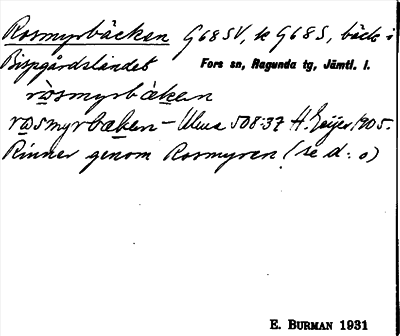 Rosmyrbäcken G68SV, se G68S, bäck i
Bispgårdslandet Fors sn, Ragunda tg, Jämtl. l.
ròsmyrbäken
rosmyrbäken – Ulma 508:37 H. Geijer 1905.
Rinner genom Rosmyren (se d:o)
E. BURMAN 1931